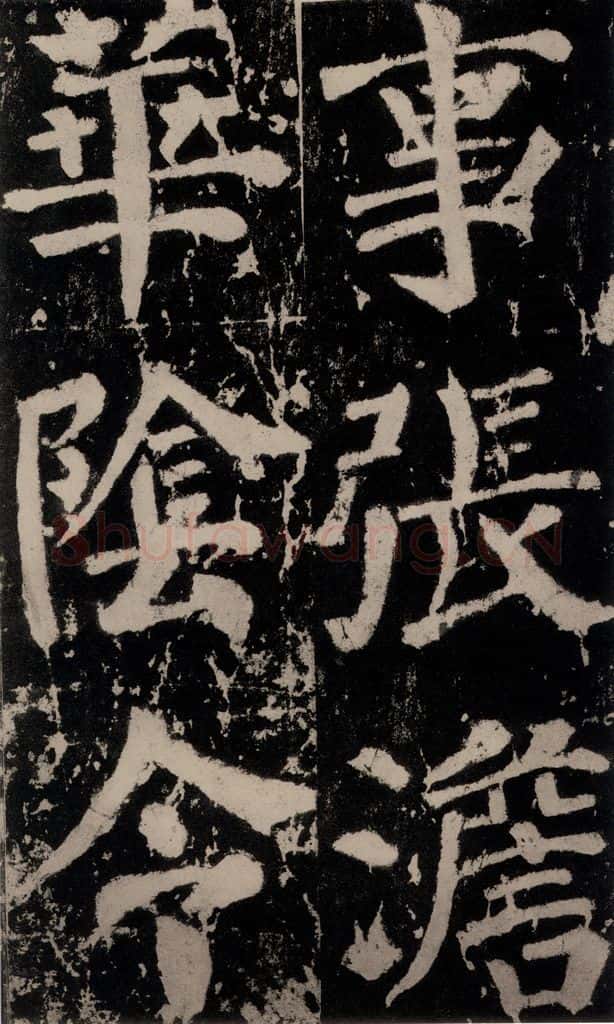 事張澹
華陰令
Shufawang.CN